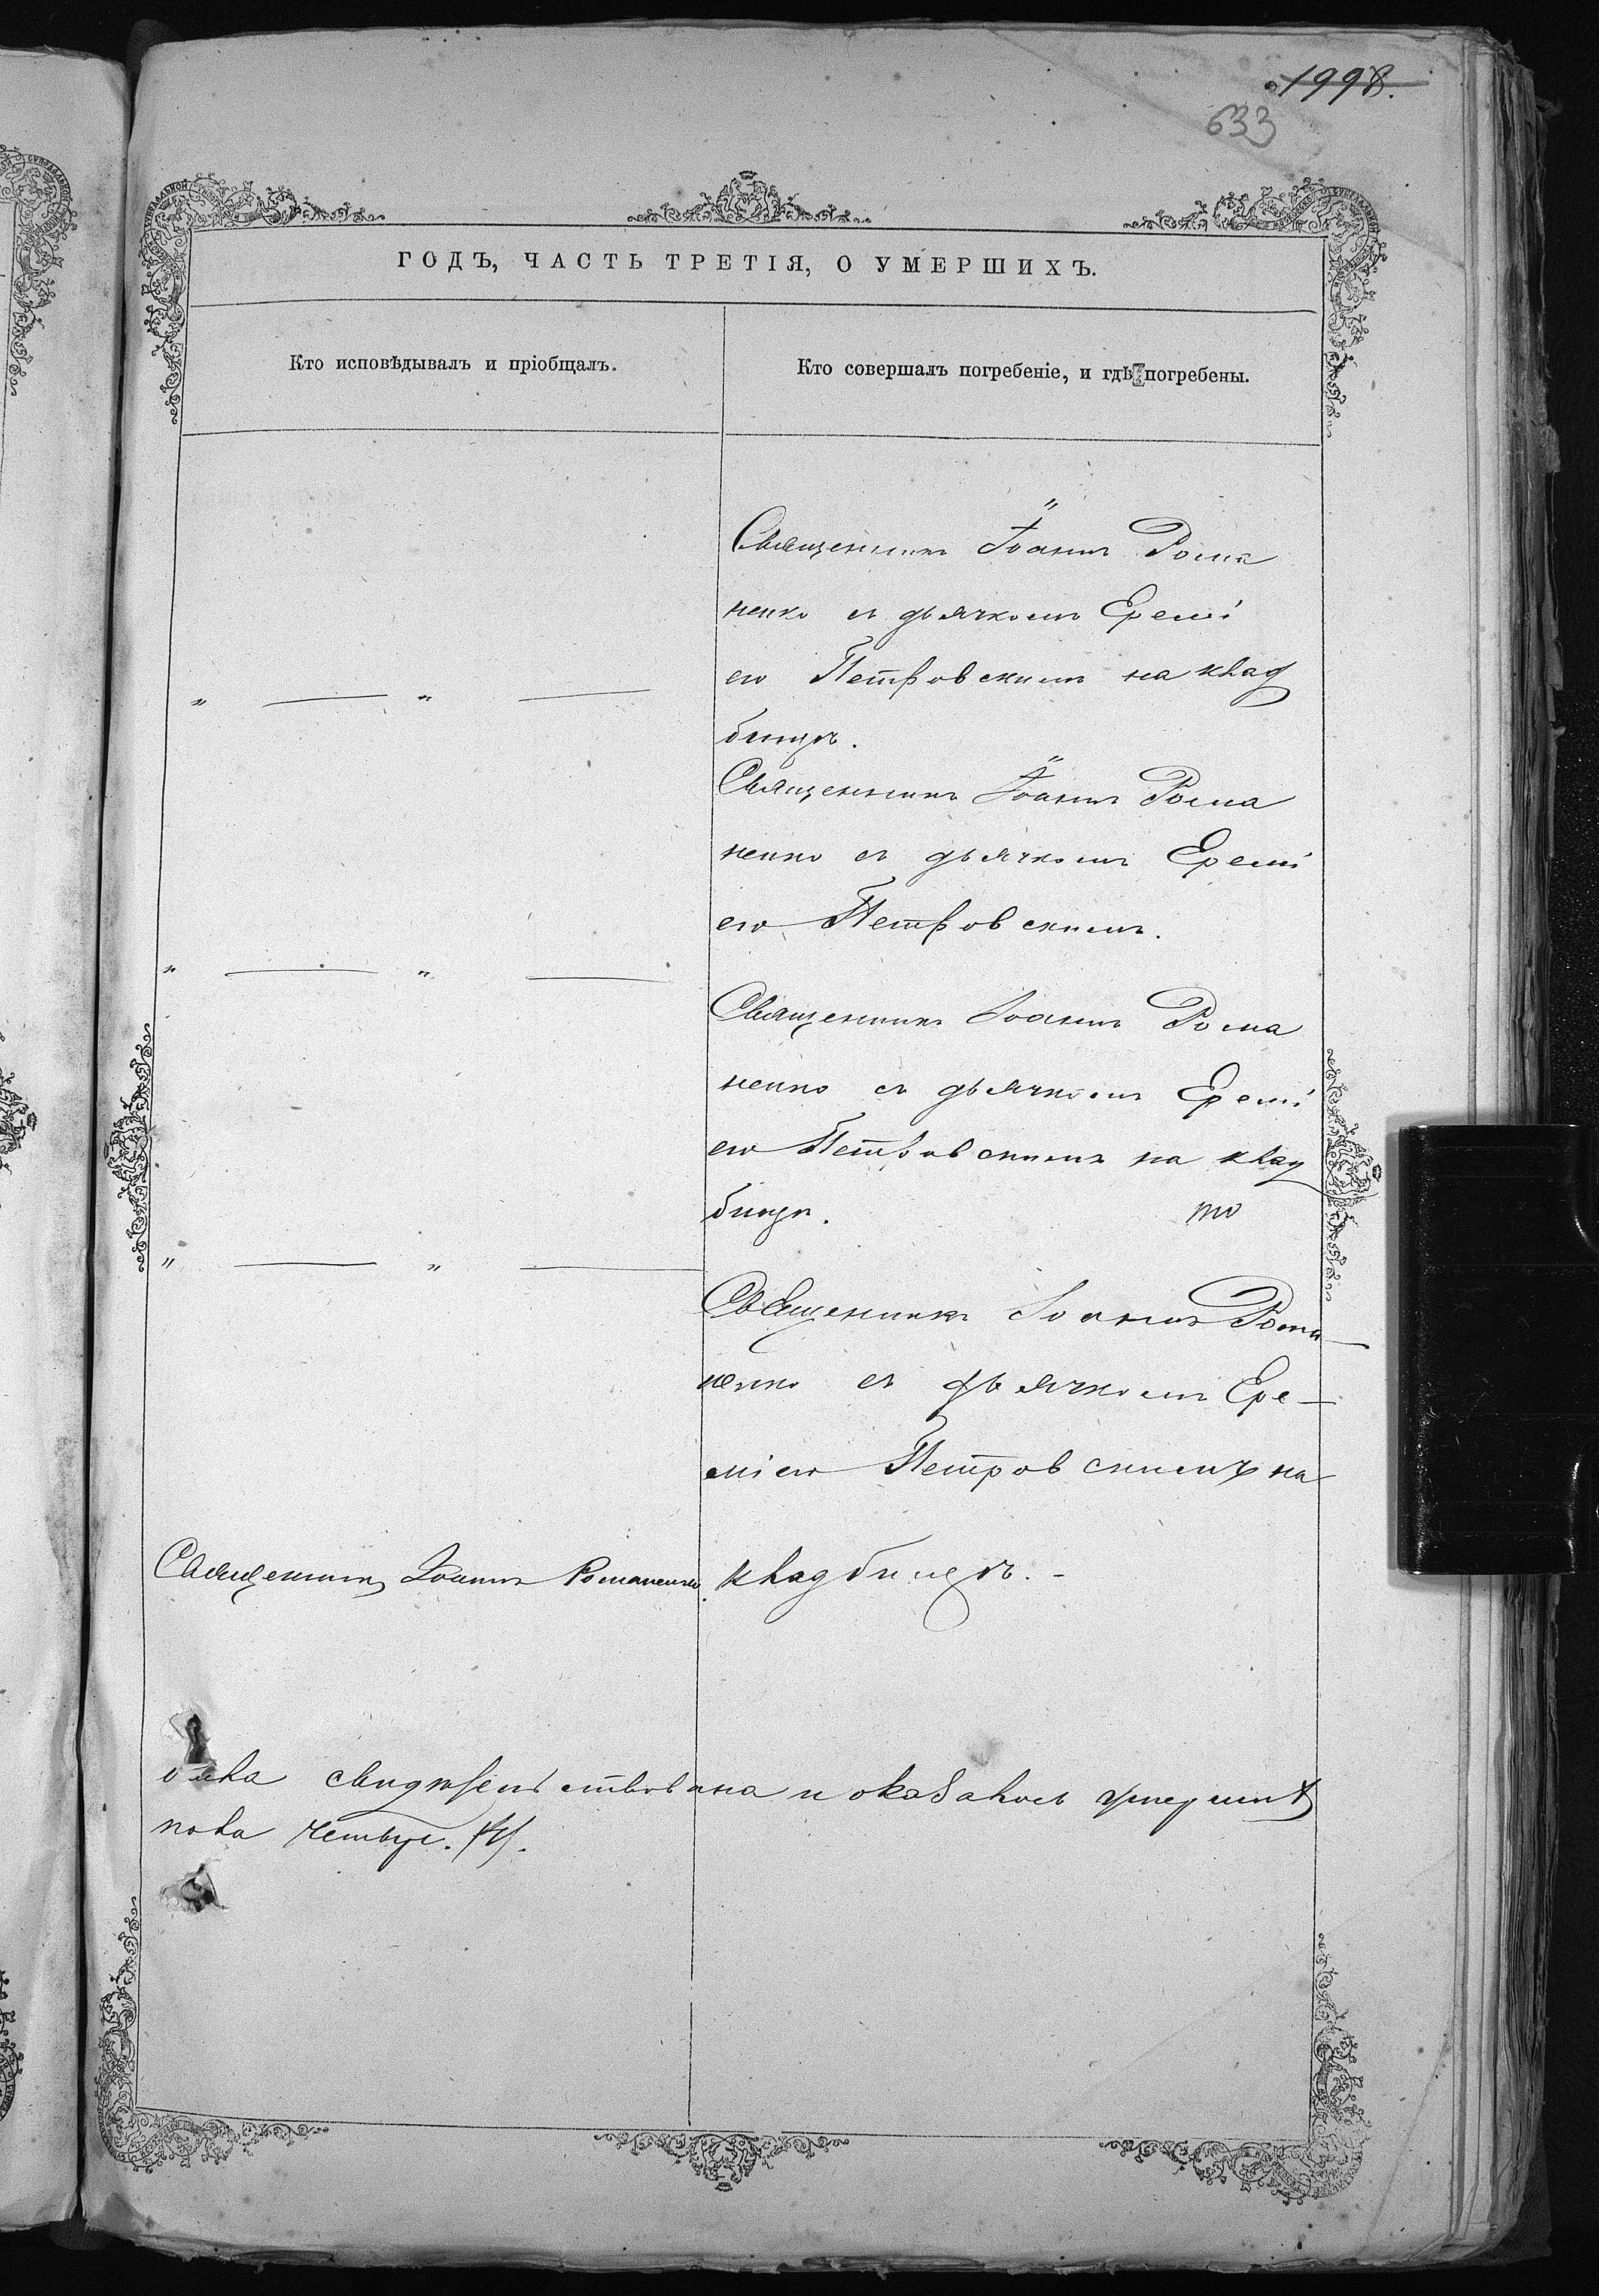 1998.
633
ГОДЪ, ЧАСТЬ ТРЕТІЯ, О УМЕРШИХЪ.
Кто исповѣдывалъ и пріобщалъ.
Кто совершалъ погребеніе, и гдѣ погребены.
Священникъ Іоаннъ Рома
ненко съ дьячкомъ Еремі
ею Петровскимъ на клад
бищѣ.
Священникъ Іоаннъ Рома
ненко съ дьячкомъ Еремі
ею Петровскимъ.
Священникъ Іоаннъ Рома
ненко съ дьячкомъ Еремі
ею Петровскимъ на клад
бищѣ. то
Священникъ Іоаннъ Рома
ненко съ дьячкомъ Ере-
міею Петровскимъ на
Священникъ Іоаннъ Романенко.
кладбищѣ.-
свидѣтельствована и оказалось умершихъ
пола четыре. /4/.